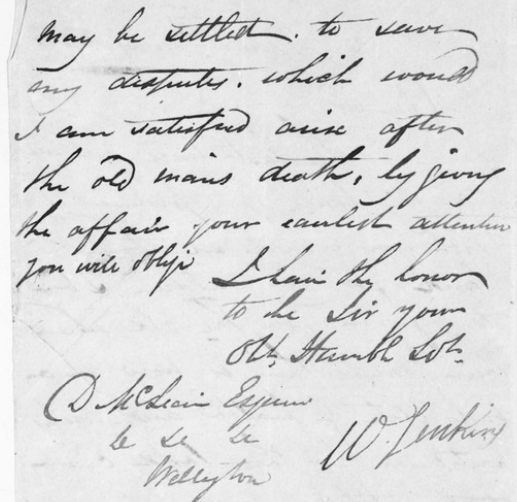 may be settled. to save
any disputes. which would
I am satisfied arise after
the old mans death, by giving
the affair your earliest attention
you will oblige
I have the honor
to be Sir your
Obt. Humbl Svt.
D McLean Esquire
&c &c &c
Wellington
W. Jenkins